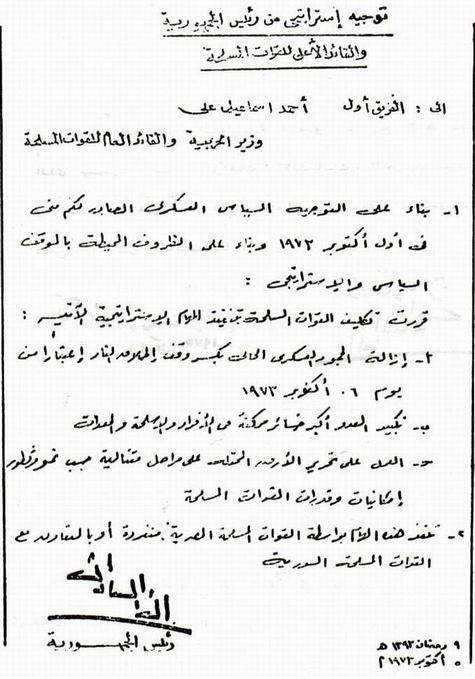 توجيه إستراتيجى من رئيس الجمهورية
والقائد الأعلى للقوات المسلحة
الى : الفريق أول أحمد اسماعيل على
وزير الحربية والقائد العام للقوات المسلحة
١- بناء على التوجيه السياسى العسكرى الصادر لكم منى
فى أول أكتوبر ١٩٧٣ وبناء على الظروف المحيطة بالموقف
السياسى والاستراتيجى :
قررت تكليف القوات المسلحة بتنفيذ المهام الاستراتيجية الآتية :
أ- إزالة الجمود العسكرى الحالى بكسر وقف إطلاق النار إعتبارا من
يوم ٠٦ أكتوبر ١٩٧٣
ب- تكبيد العدو أكبر خسائر ممكنة فى الأفراد والاسلحة والمعدات
ح- العمل على تحرير الأرض المحتلة على مراحل متتالية حسب نمو وتطور
إمكانيات وقدرات القوات المسلحة
٢- تنفذ هذه المهام بواسطة القوات المسلحة المصرية منفردة أو بالتعاون مع
القوات المسلحة السورية
أنور السادات
رئيس الجمهورية
٩ رمضان ١٣٩٣ هـ
٥ أكتوبر ١٩٧٣ م